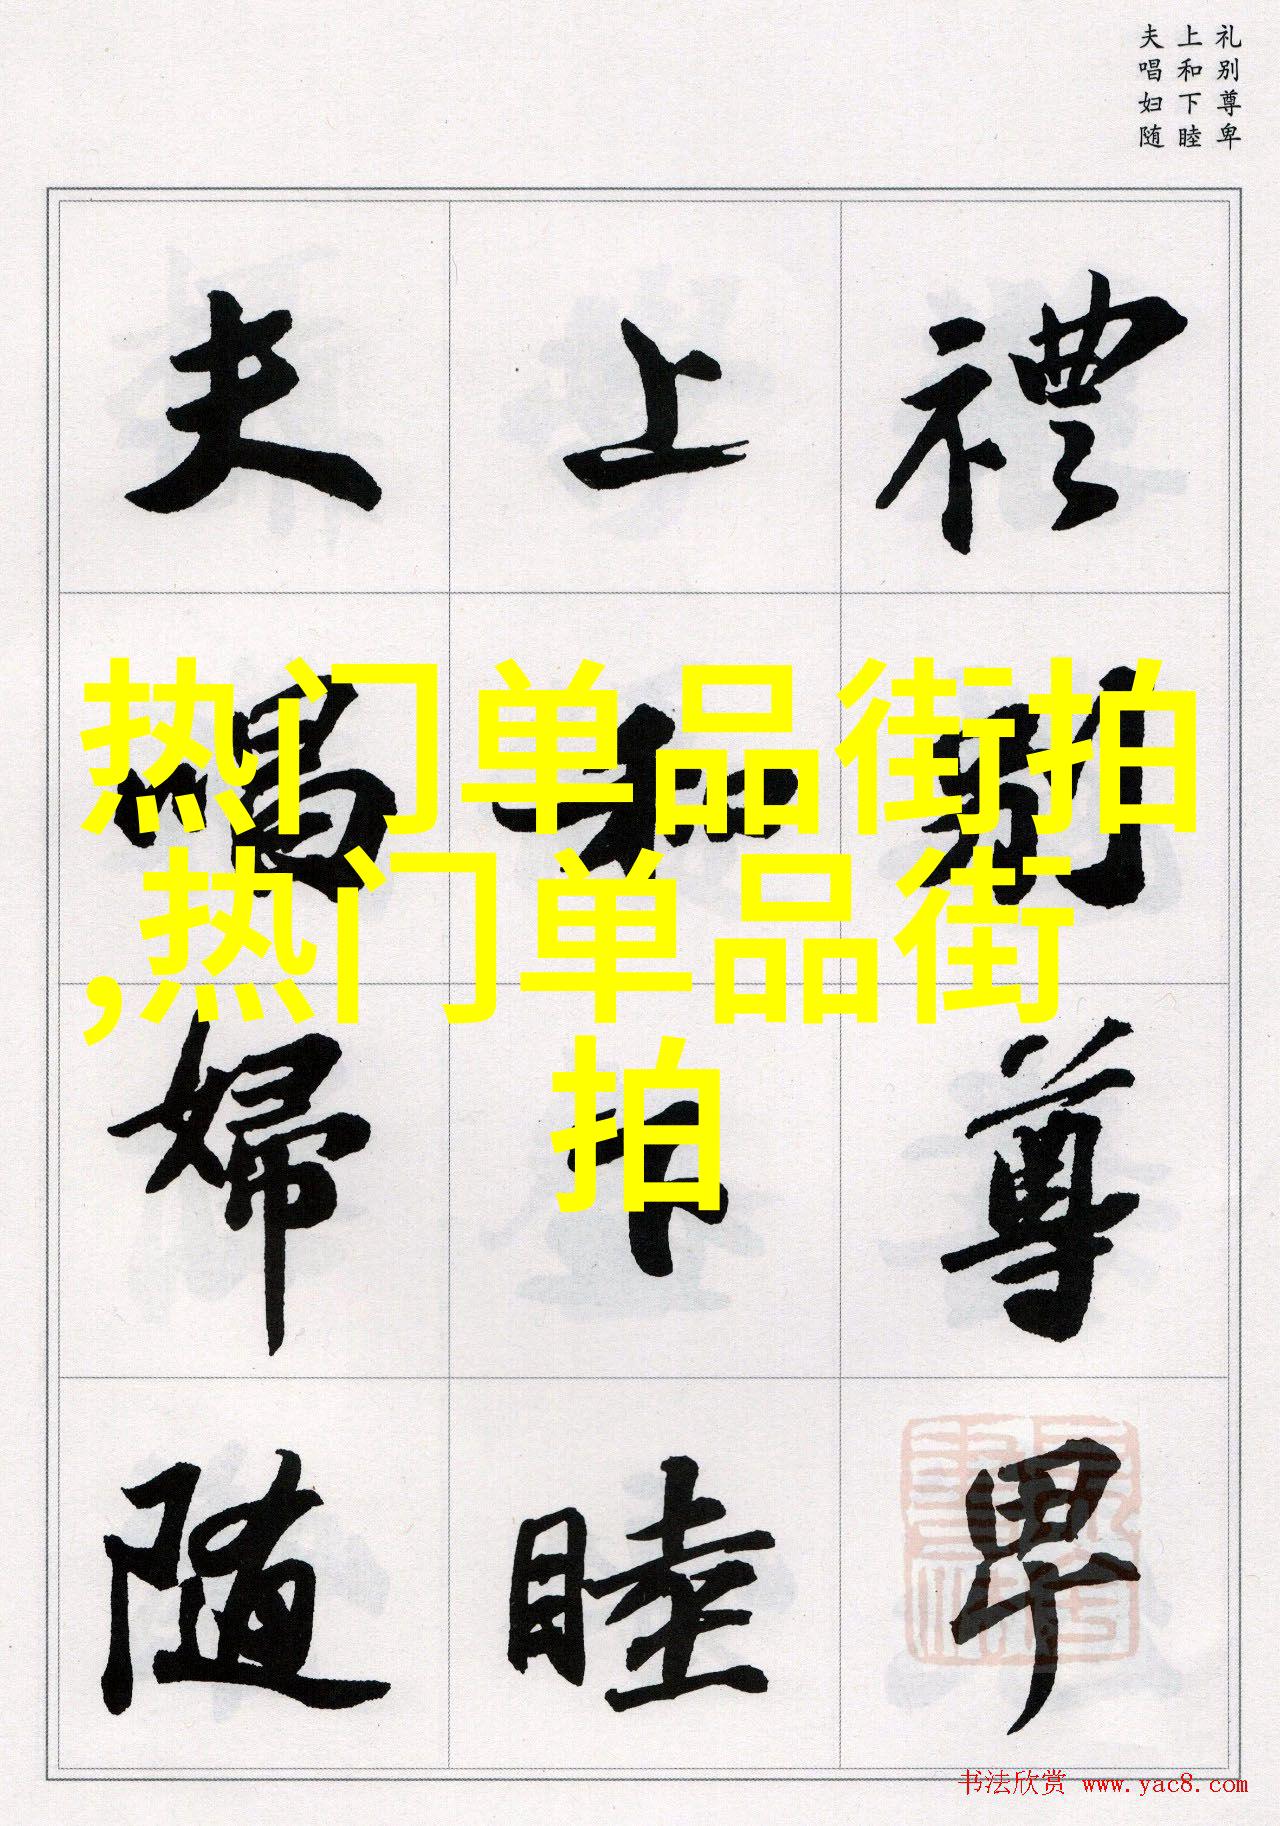 礼别尊卑
上和下睦
夫唱妇随
禮别尊卑
上和下睦
夫唱婦随
热门单品街拍
,热门单品街
拍
书法欣赏 www.yac8.com